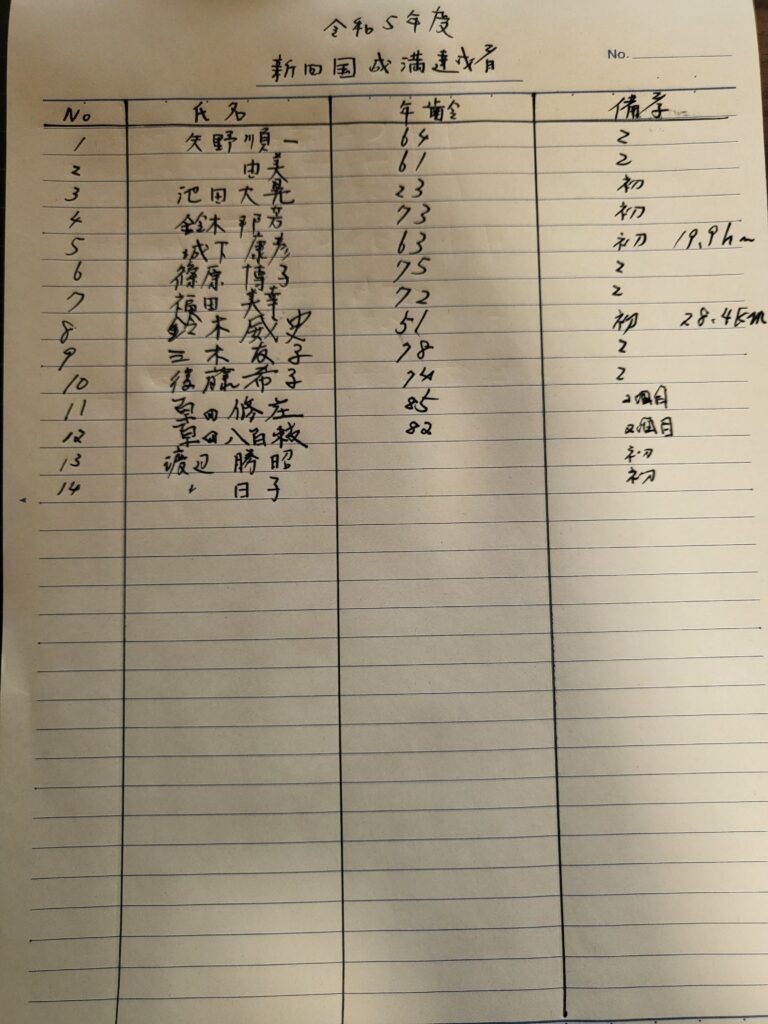 令和5年度
新四国成満達成者
No.
No 氏名 年齢 備考
1 矢野順一 64 2
2 由美 61 2
3 池田大晃 23 初
4 鈴木邦芳 73 初
5 城下康彦 63 初 19.9km
6 篠原博子 75 2
7 福田美幸 72 2
8 鈴木威史 51 初 28.4km
9 三木友子 78 2
10 後藤希子 74 2
11 草田修左 85 2回目
12 草田八百 82 2回目
13 渡辺勝昭 初
14 〃 日子 初